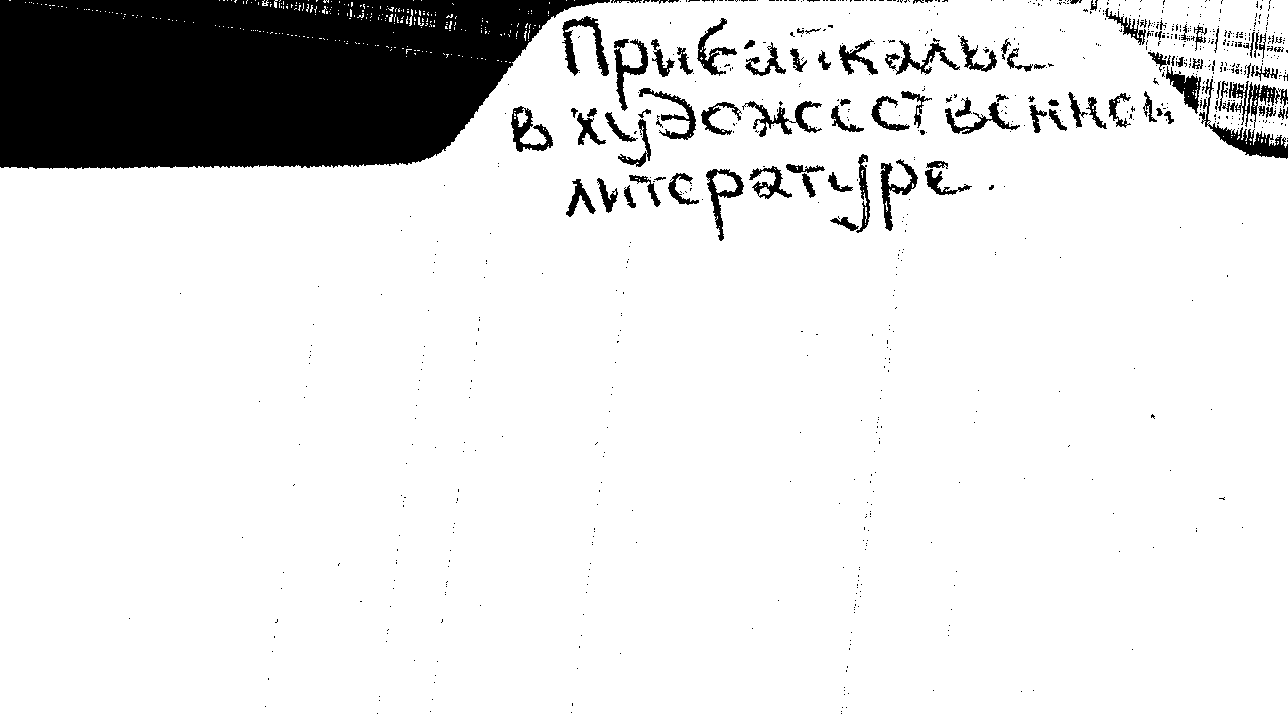 Прибайкалье
в художественной
литературе.